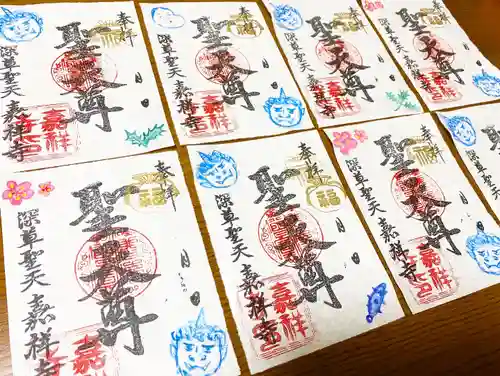 奉拝
聖天尊
月 日
深草聖天 嘉祥寺
嘉祥
奉拝
聖天尊
月 日
深草聖天 嘉祥寺
嘉祥
奉拝
聖天尊
月 日
深草聖天 嘉祥寺
奉拝
聖天尊
月 日
深草聖天 嘉祥寺
奉拝
聖天尊
月 日
深草聖天 嘉祥寺
嘉祥
奉拝
聖天尊
月 日
深草聖天 嘉祥寺
嘉祥
奉拝
聖天尊
月 日
深草聖天 嘉祥寺
嘉祥